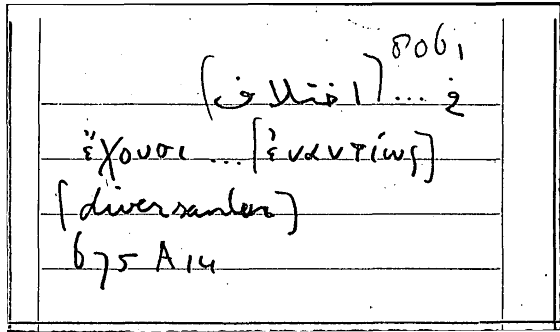 8061
في ... [اختلاف]
ἔχουσι ... [ἐναντίως]
[diversantur]
675 A 14